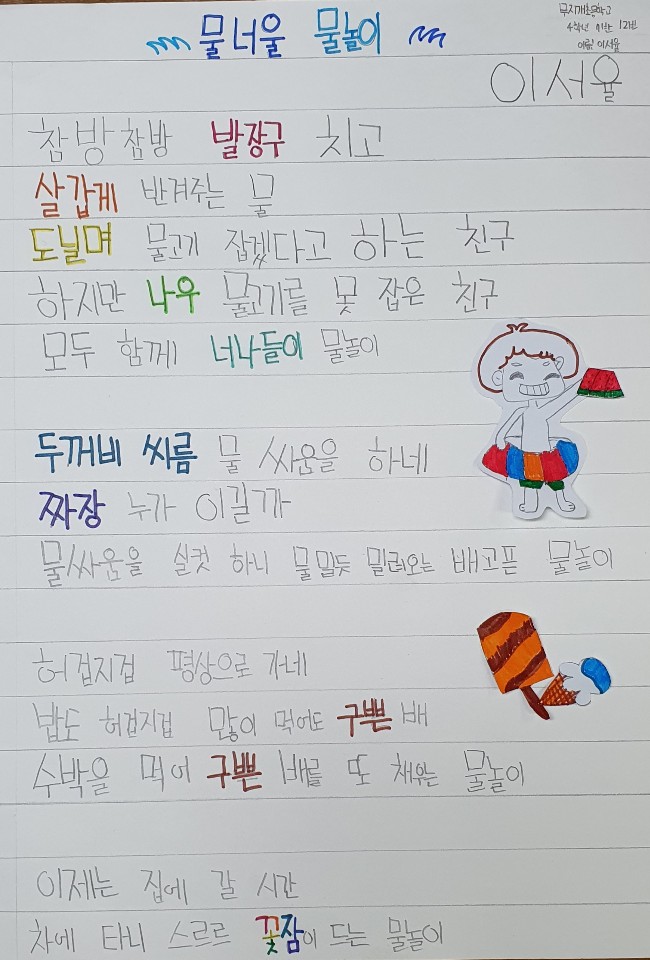 물너울 물놀이
무지개초등학교
4학년 1반 12번
이름: 이서율
이서율
참방참방 발장구 치고
살갑게 반겨주는 물
도닐며 물고기 잡겠다고 하는 친구
하지만 나우 물고기를 못 잡은 친구
모두 함께 너나들이 물놀이
두꺼비 씨름 물 싸움을 하네
짜장 누가 이길까
물싸움을 실컷 하니 물밀듯 밀려오는 배고픈 물놀이
허겁지겁 평상으로 가네
밥도 허겁지겁 많이 먹어도 구쁜 배
수박을 먹어 구쁜 배를 또 채우는 물놀이
이제는 집에 갈 시간
차에 타니 스르르 꽃잠이 드는 물놀이